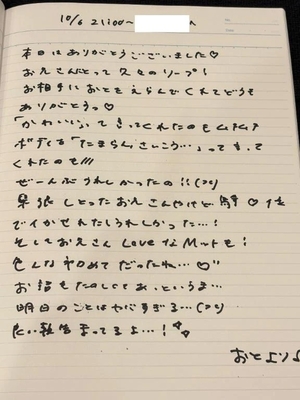 10/6 21:00~
本日はありがとうございました♡
お兄さんにとって久々のソープ!
お相手におとをえらんでくれてどうも
ありがとうっ♡
「かわいい」って言ってくれたのもムチムチ
ボディも「たまらん さいこう…」って言って
くれたのも!!!
ぜーんぶうれしかったの!!
しとったお兄さんやけど
でイかせれたしうれしかった…!
そしてお兄さん LoveなMットも!
色んな初めてだったね…♡
お話もたのしくてあっというま…
明日のごとはやばすぎる…
良い報告まってるよ…!
おとより♪